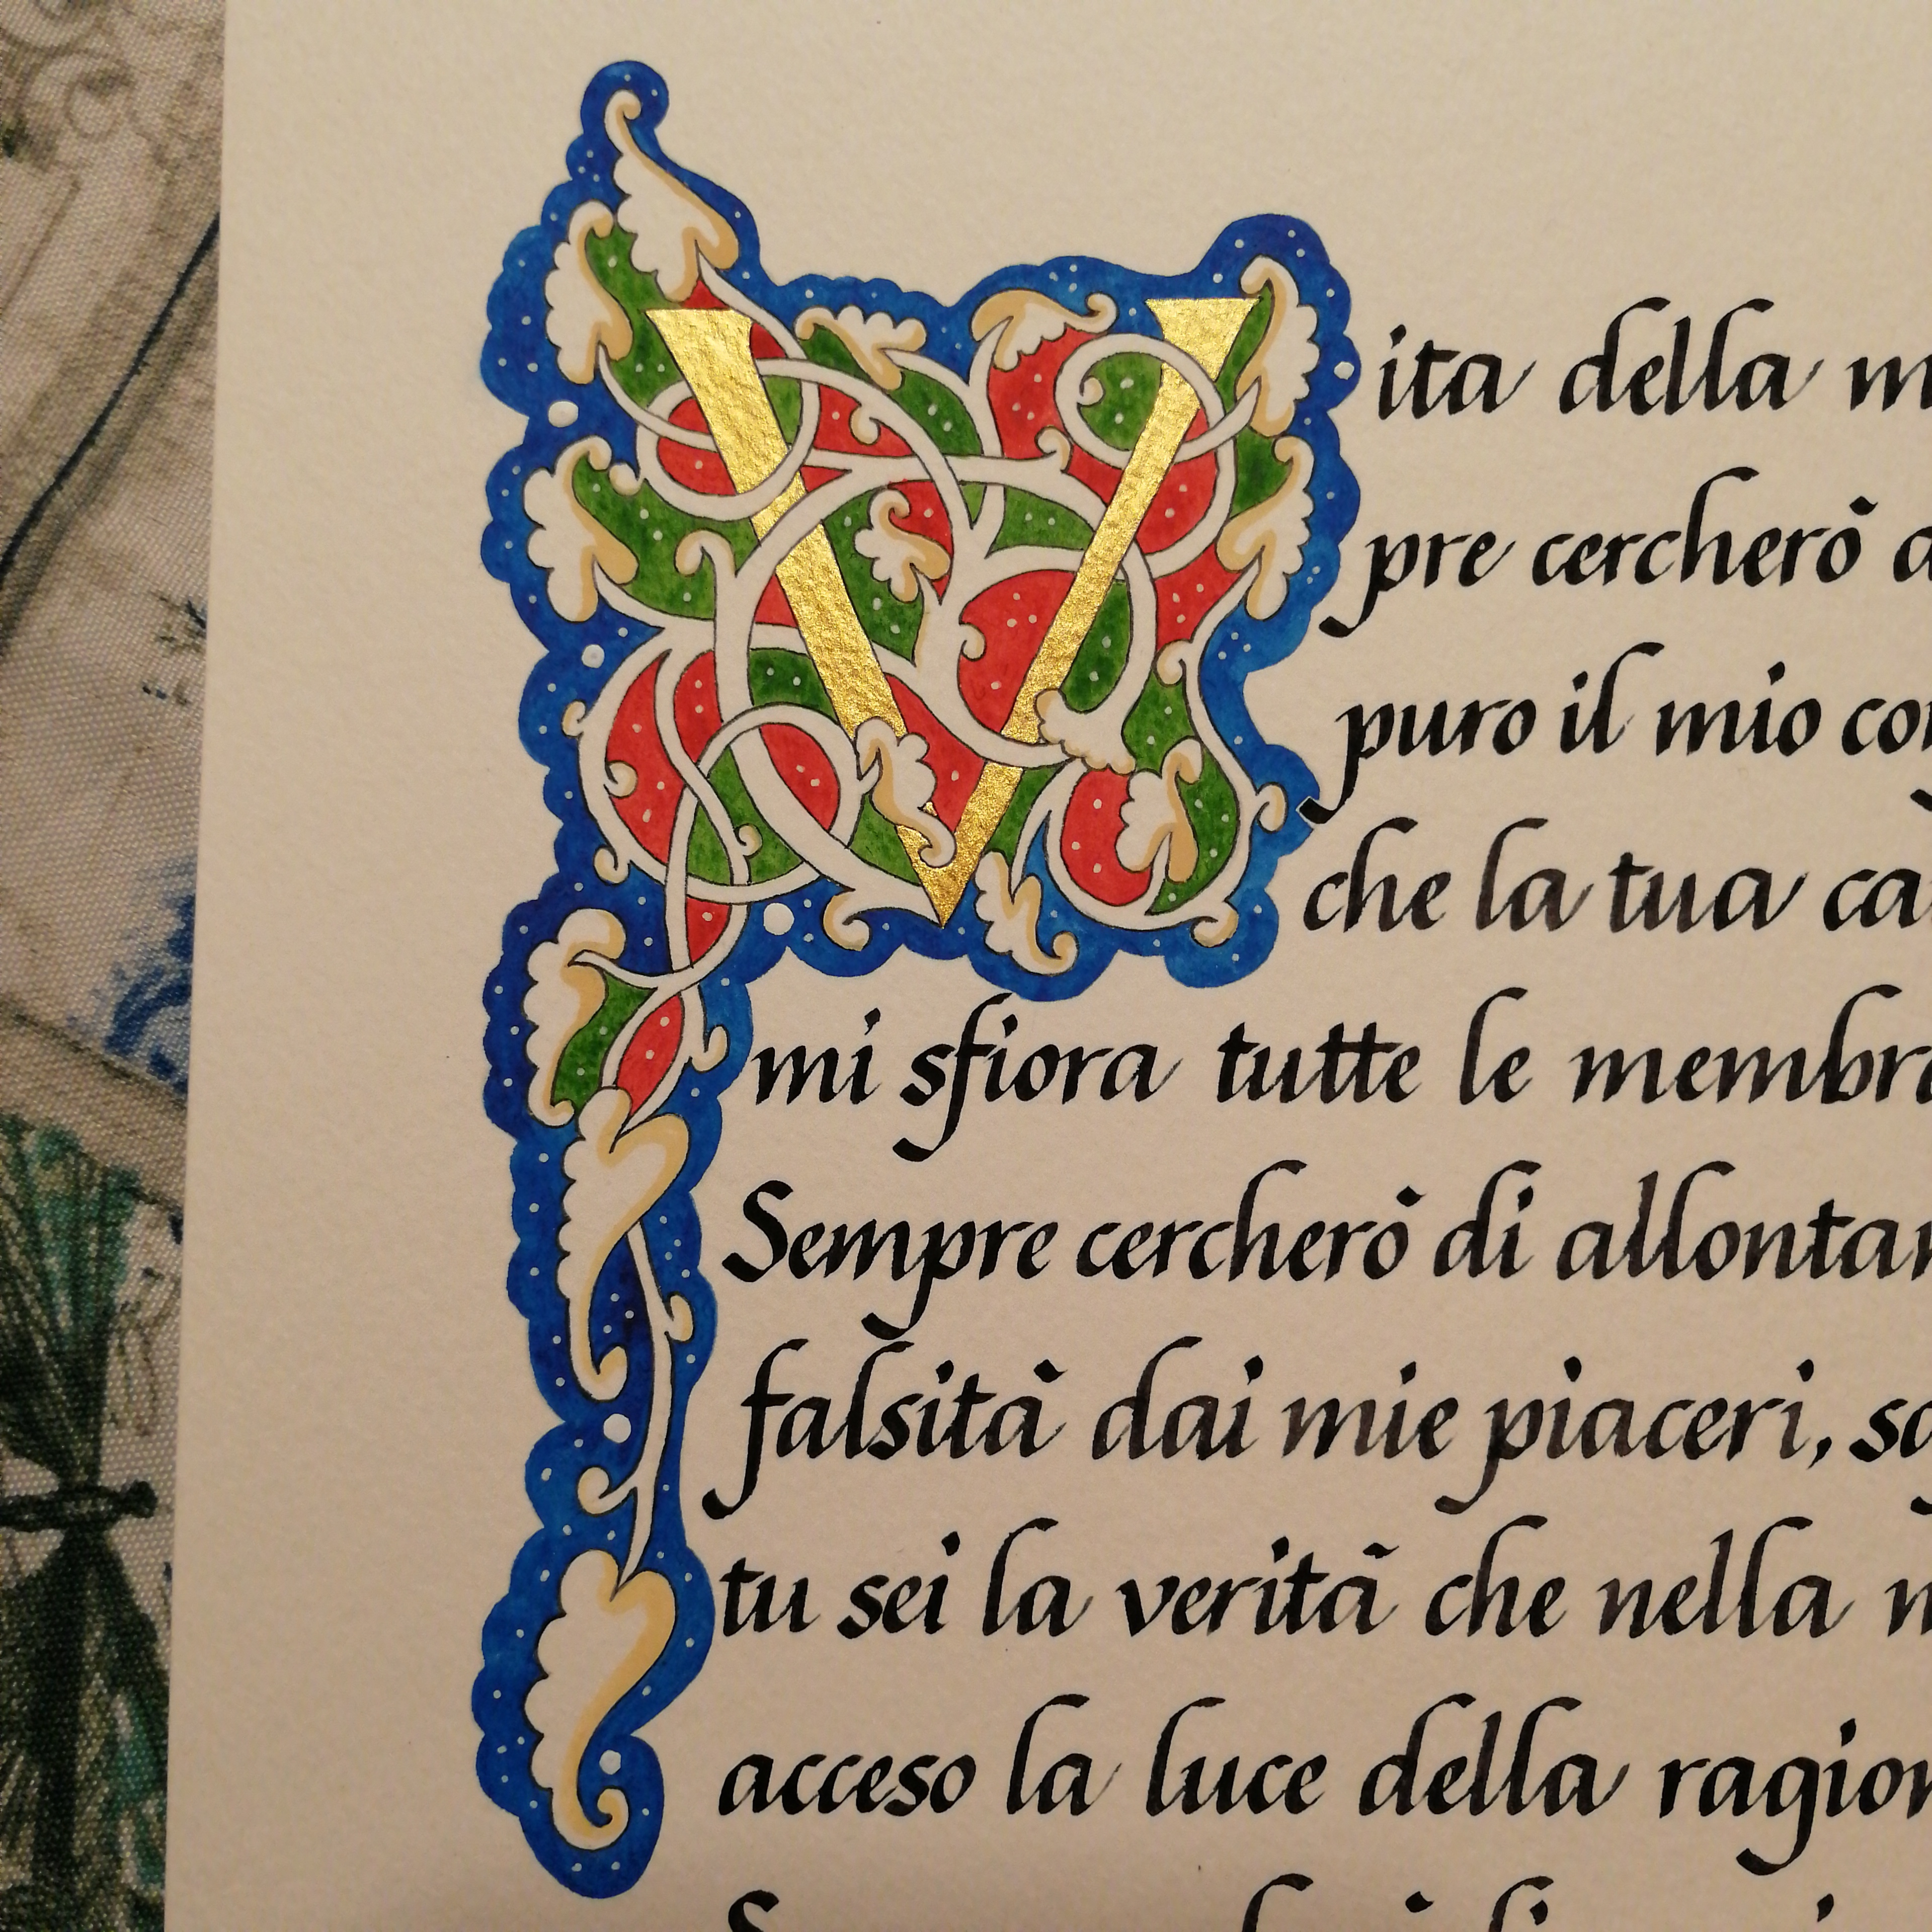 Vita della m
pre cercherò
puro il mio cor
che la tua ca
mi sfiora tutte le membra
Sempre cercherò di allontan
falsità dai mie piaceri,
tu sei la verità che nella
acceso la luce della ragion